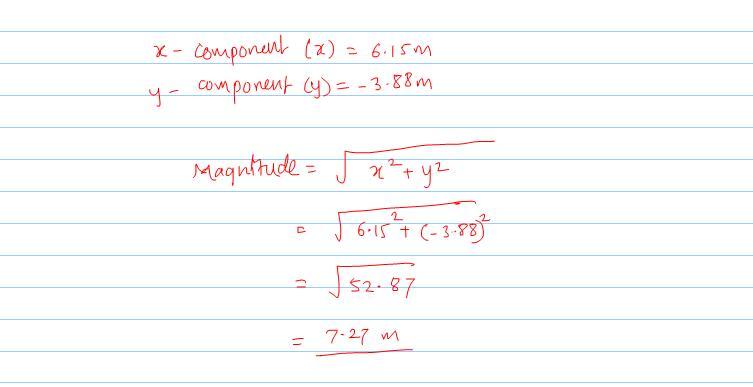 x - component (x) = 6.15m
y - component (y) = -3.88m
Magnitude = √x² + y²
= √6.15² + (-3.88)²
= √52.87
= 7.27 m